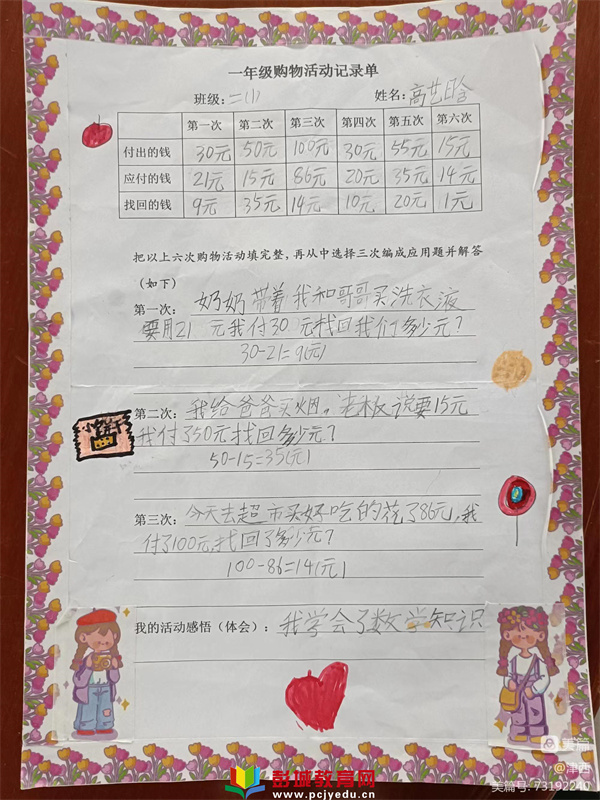 一年级购物活动记录单
班级:二(1) 姓名:高艺晗
第一次 第二次 第三次 第四次 第五次 第六次
付出的钱 30元 50元 100元 30元 55元 15元
应付的钱 21元 15元 86元 20元 35元 14元
找回的钱 9元 35元 14元 10元 20元 1元
把以上六次购物活动填完整，再从中选择三次编成应用题并解答
（如下）
第一次：奶奶带着我和哥哥买洗衣液
要用21元我付30元找回我们多少元？
30-21=9(元)
第二次：我给爸爸买烟。老板说要15元
我付了50元找回多少元？
50-15=35(元)
小饼干
第三次：今天去超市买好吃的花了86元，我
付了100元，找回了多少元？
100-86=14(元)
我的活动感悟（体会）：我学会了数学知识
美篇
@津西
美篇号:73192240
彭城教育网
www.pcjyedu.cn